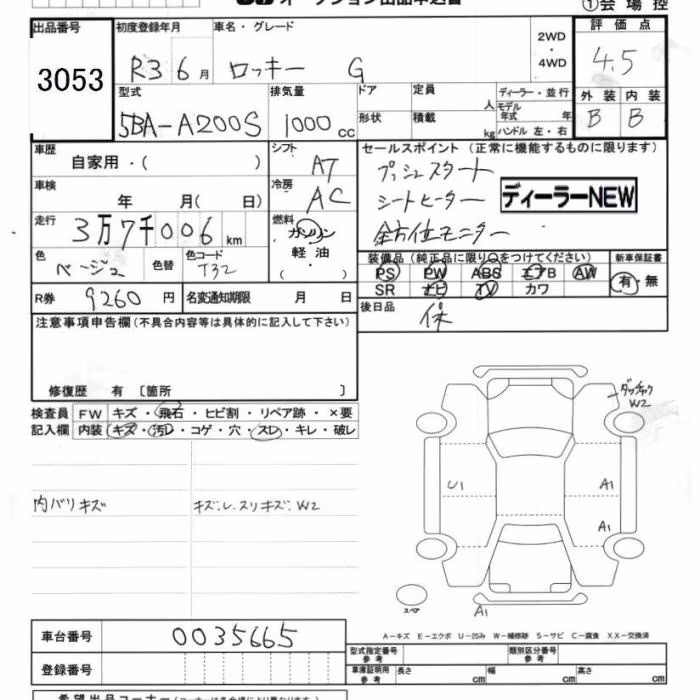 オークション出品申込書
①会場控
出品番号 初度登録年月 車名・グレード 2WD・4WD 評価点
3053 R3 6月 ロッキー G 4.5
型式 排気量 ドア 定員 人 ディーラー・並行 外装 内装
5BA-A200S 1000 CC 形状 積載 kg モデル年式 年 B B
ハンドル 左・右
車歴 自家用・( ) シフト AT セールスポイント (正常に機能するものに限ります)
プッシュスタート
車検 年 月( 日) 冷房 AC シートヒーター ディーラーNEW
走行 3万7千006km 燃料 ガソリン 軽油 ( ) 全方位モニター
色 ベージュ 色替 色コード T32 装備品 (純正品に限り○をつけてください) 新車保証書
PS PW ABS エアB AW 有・無
SR ナビ TV カワ
R券 9260円 名変通知期限 月 日 後日品 保
注意事項申告欄(不具合内容等は具体的に記入して下さい)
修復歴 有 〔箇所 〕
検査員 FW キズ・飛石・ヒビ割・リペア跡・×要
記入欄 内装 キズ・汚レ・コゲ・穴・スレ・キレ・破レ
ダッチャク
W2
U1 A1
内バリキズ キズ.U.スリキズ.W2
A1
スペア A1
A-キズ E-エクボ U-凹ミ W-補修跡 S-サビ C-腐食 XX-交換済
車台番号 0035665
型式指定番号 参考 類別区分番号 参考
登録番号 車庫証明用 参考 長さ cm 幅 cm 高さ cm
希望出品コーナー